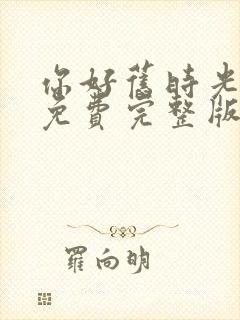 你好舊時光
免費完整版
羅向明